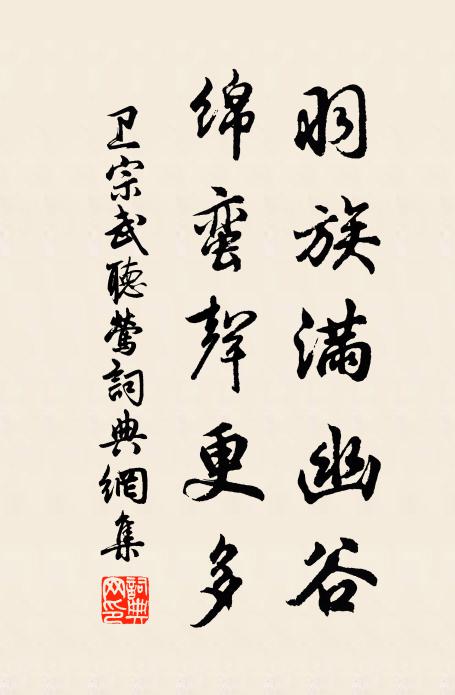 羽族满幽谷
绵蛮聲更多
卫宗武聽莺詞典網集
詞典网印